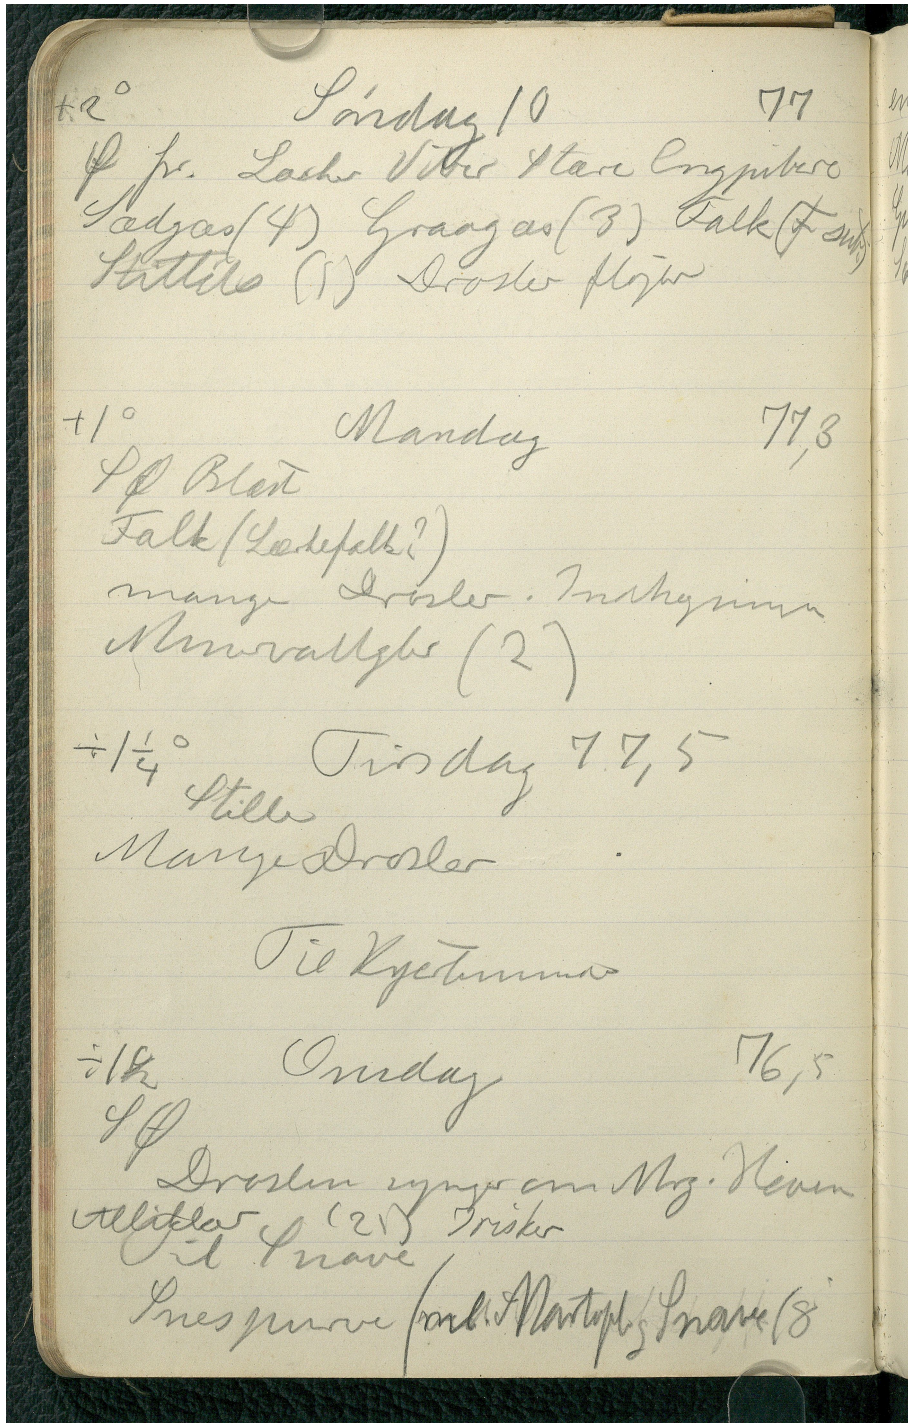 +2° Søndag 10 77
Ø fr. Lærker Viber Stære Engpibere
Sædgæs (4) Graagæs (3) Falk (F
Stillits (1) Drosler fløjter
+1° Mandag 77,3
SØ Blæst
Falk (Lærkefalk?)
mange Drosler.
(2)
÷1 1/4° Tirsdag 77,5
Stille
Mange Drosler
Til
÷1 Onsdag 76,5
SØ
Droslen synger om Mrg. Haven
Allikker (21) Irisker
Til Snave
Snespurve (ml. &  Snave (8